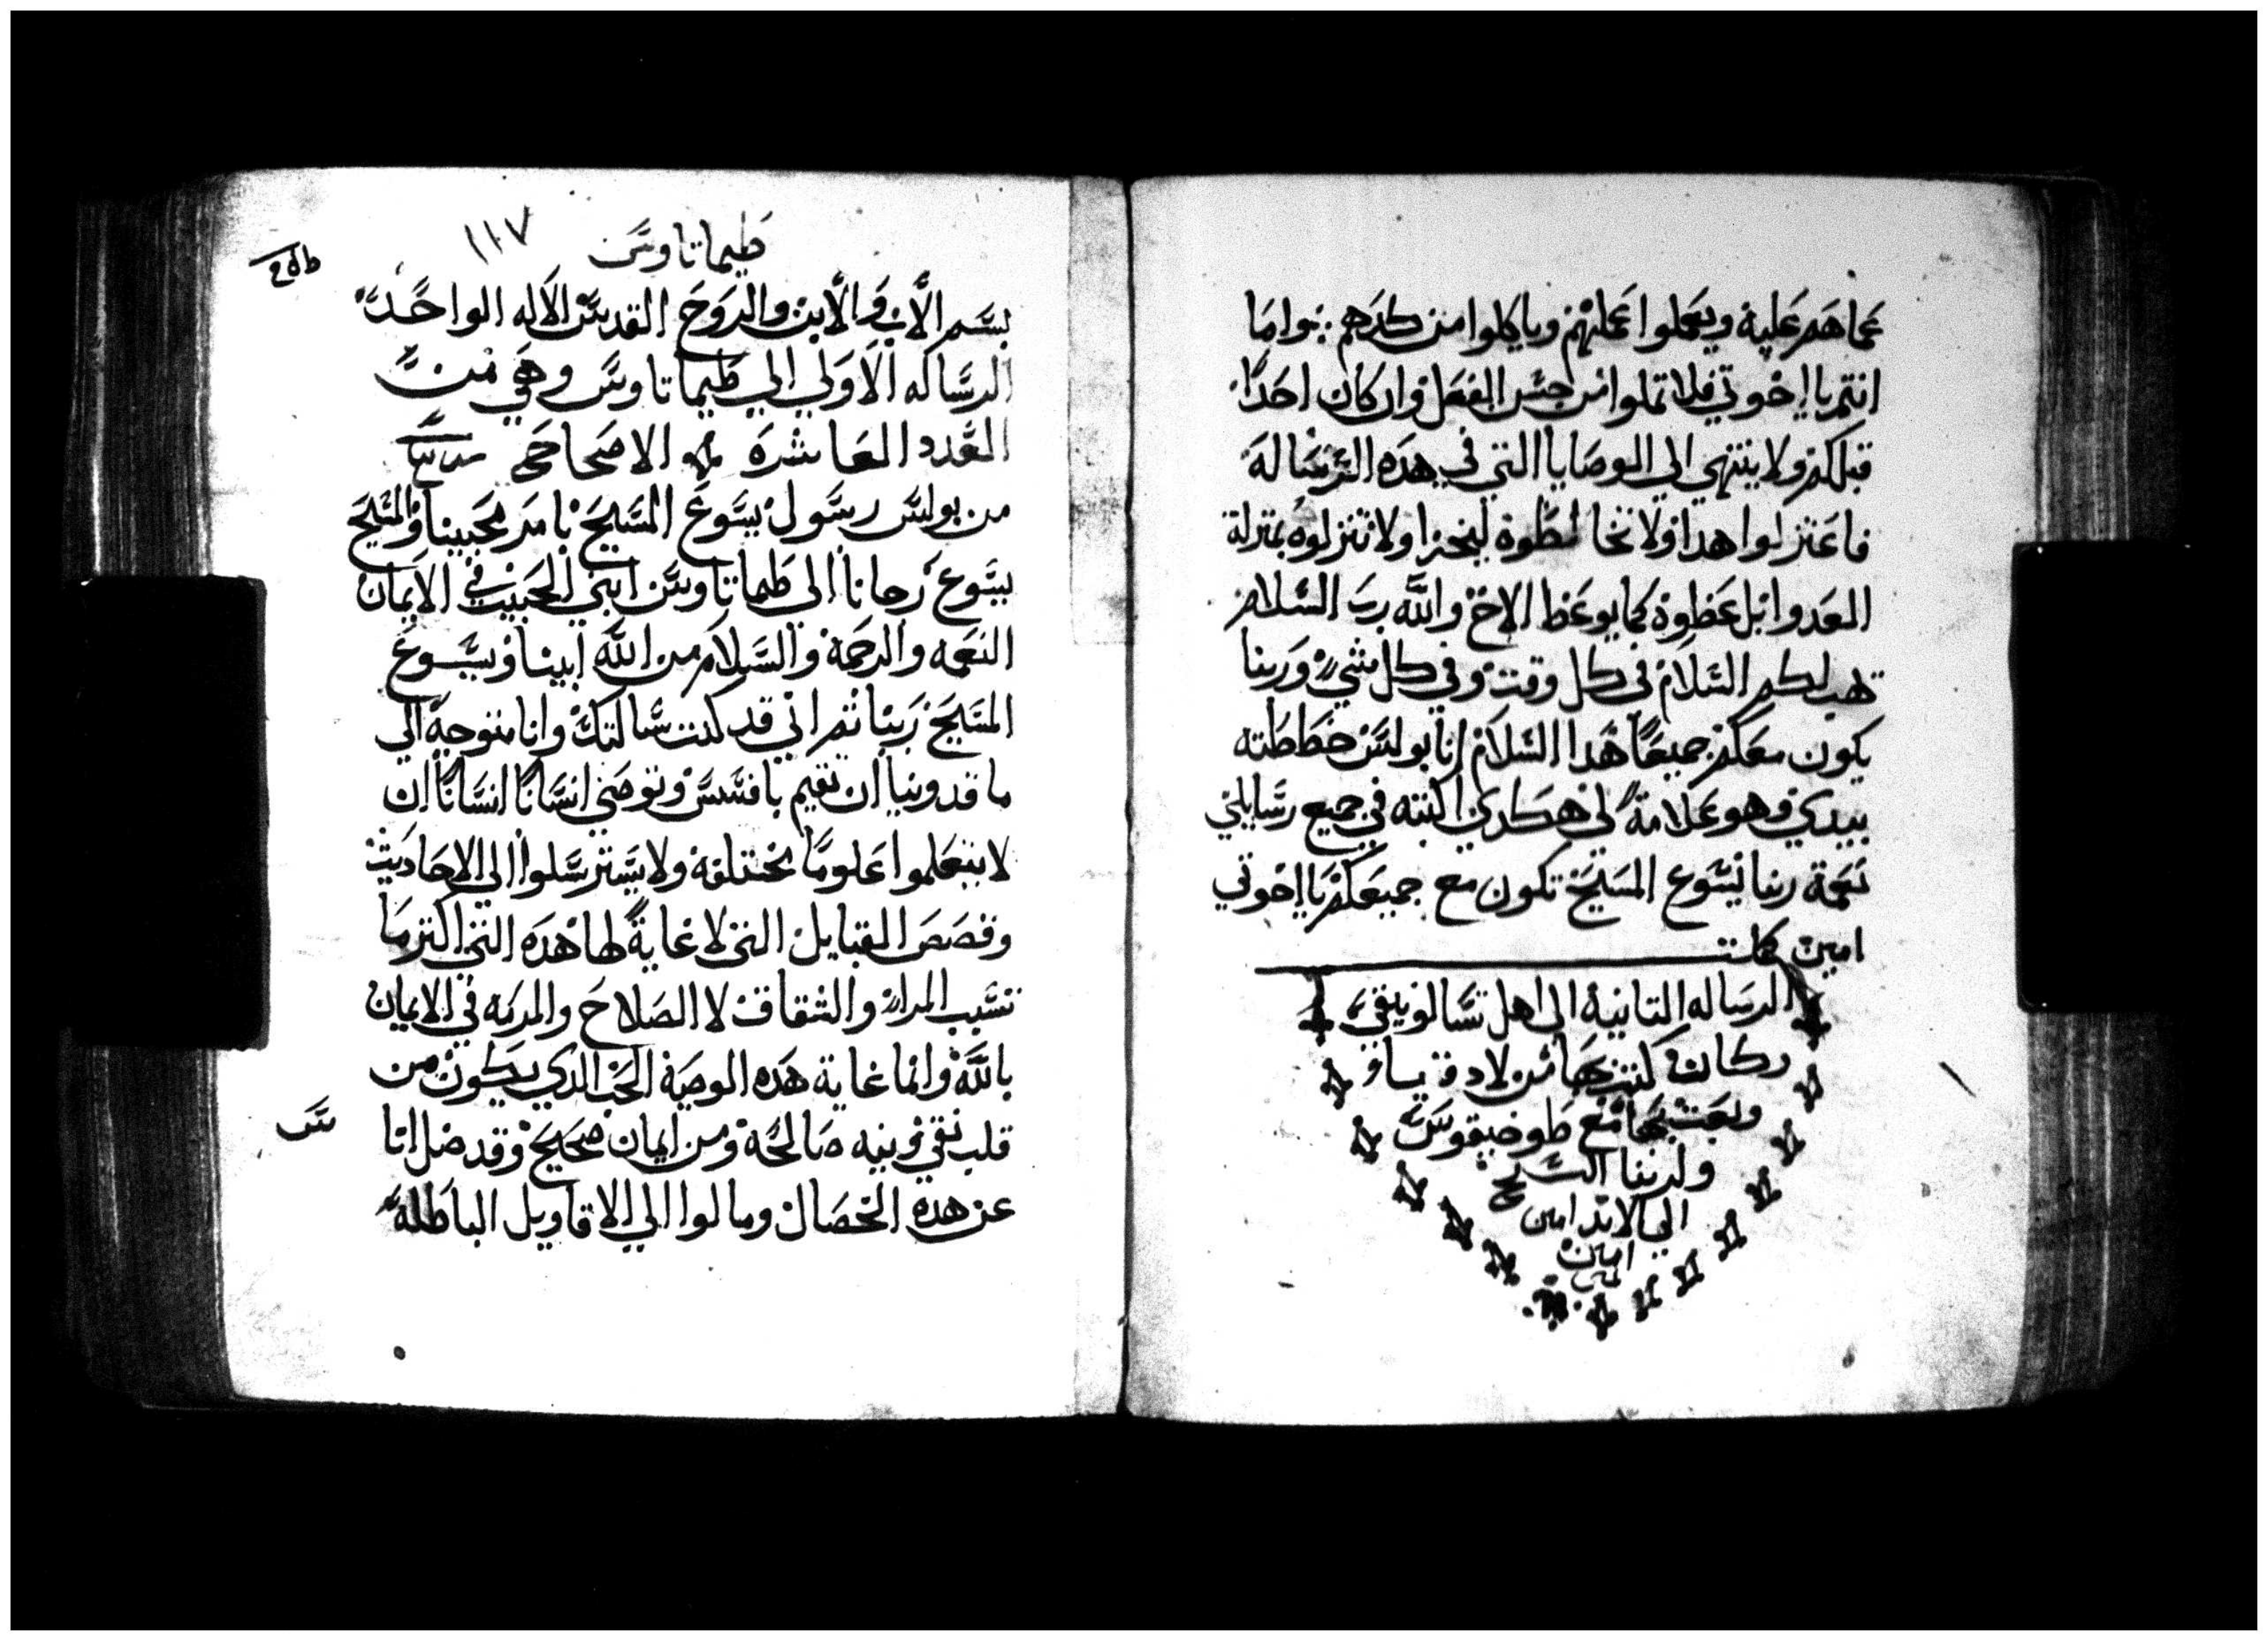 عماهم عليه ويعملوا عملهم وياكلوا من كدهم : واما
انتم يا اخوتي فلا تملوا من حسن الفعل وان كان احدا
قبلكم ولا ينتهي الي الوصايا التي في هده الرساله
فاعتزلوا هدا ولا تخالطوه ليخزا ولا تنزلوه بمنزلة
العدو ابل عظوه كما يوعظ الاخ والله رب السلام
يهب لكم السلام في كل وقت وفي كل شي وربنا
يكون معكم جميعا هدا السلام انا بولس خططته
بيدي وهو علامة لي هكدي اكتبه في جميع رسايلي
نعمة ربنا يسوع المسيح تكون مع جميعكم يا اخوتي
امين كملت
الرساله التانية الي اهل تسالونيقي
وكان كتب بها من لادقيا
وبعت بها مع طوخيقوس
ولربنا السبح
الي الابد امين
امين
طيماتاوس ١١٧
بسم الاب والابن والروح القدس الاله الواحد
الرساله الاولي الي طيماتاوس وهي من
العدد العاشره الاصحاح
من بولس رسول يسوع المسيح بامر محيينا والمسيح
يسوع رجانا الي طيماتاوس ابني الحبيب في الايمان
النعمه والرحمة والسلام من الله ابينا ويسوع
المسيح ربنا تم اني قد كنت سالتك وانا متوجه الي
ماقدونيا ان تقيم بافسس وتوصي انسانا انسانا ان
لا يتعلموا علوما مختلفه ولا يسترسلوا الي الاحاديت
وقصص القبايل التي لا غاية لها هده التي اكترما
تسبب المرا والشقاق لا الصلاح والمرمه في الايمان
بالله وانما غاية هده الوصية الحب الدي يكون من
قلب نقي ونيه صالحه ومن ايمان صحيح وقد ضل اناس
عن هده الخصال ومالوا الي الاقاويل الباطله